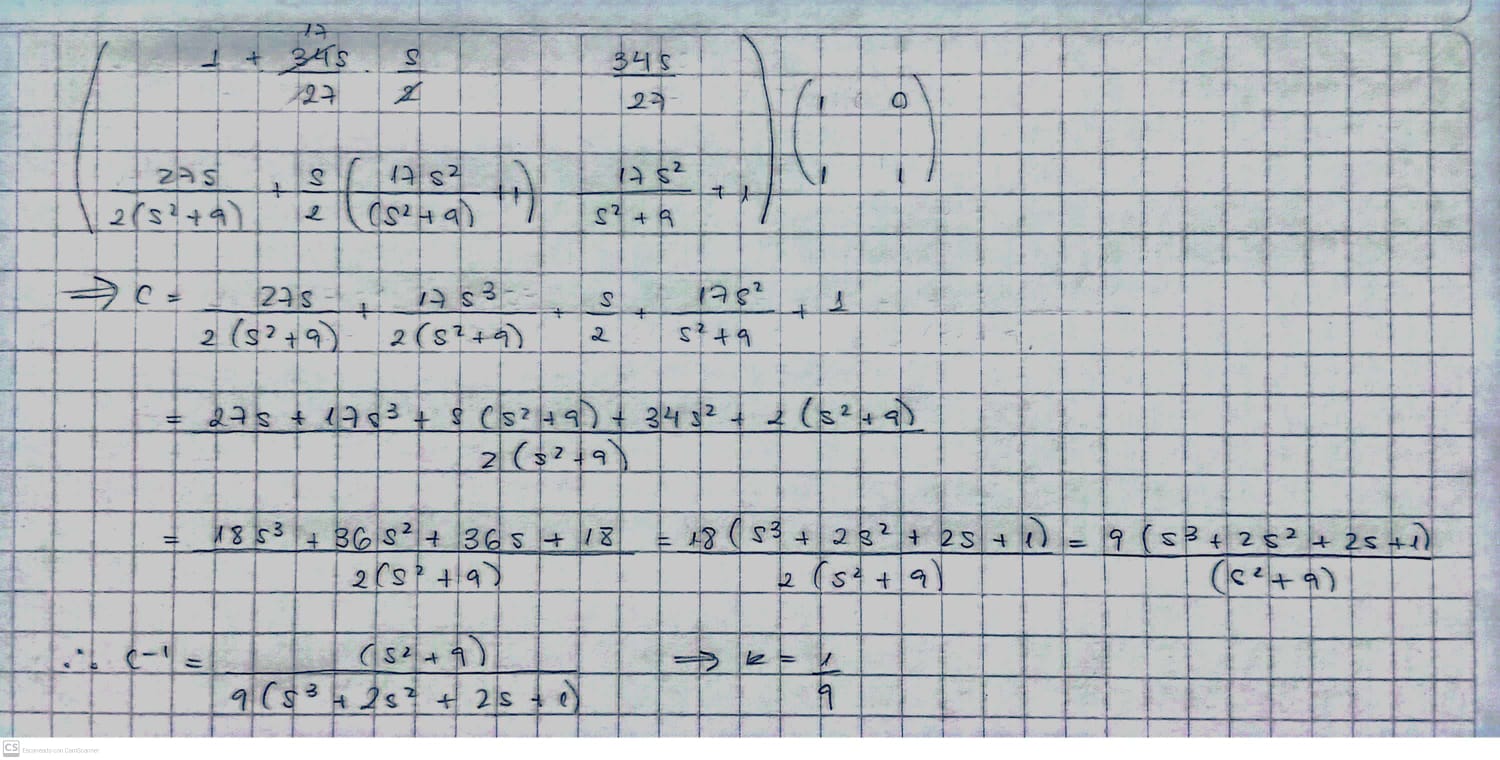 ( 1 + 17 34s/27 · s/2    34s/27 ) ( 1 0
27s/2(s²+9) + s/2 ( 17s²/(s²+9) + 1 )    17s²/s²+9 + 1 ) 1 1 )
⇒ C = 27s/2(s²+9) + 17s³/2(s²+9) + s/2 + 17s²/s²+9 + 1
= 27s + 17s³ + s(s²+9) + 34s² + 2(s²+9) / 2(s²+9)
= 18s³ + 36s² + 36s + 18 / 2(s²+9) = 18(s³ + 2s² + 2s + 1) / 2(s²+9) = 9(s³ + 2s² + 2s + 1) / (s²+9)
∴ C⁻¹ = (s²+9) / 9(s³ + 2s² + 2s + 1) ⇒ k = 1/9
CS Escaneado con CamScanner